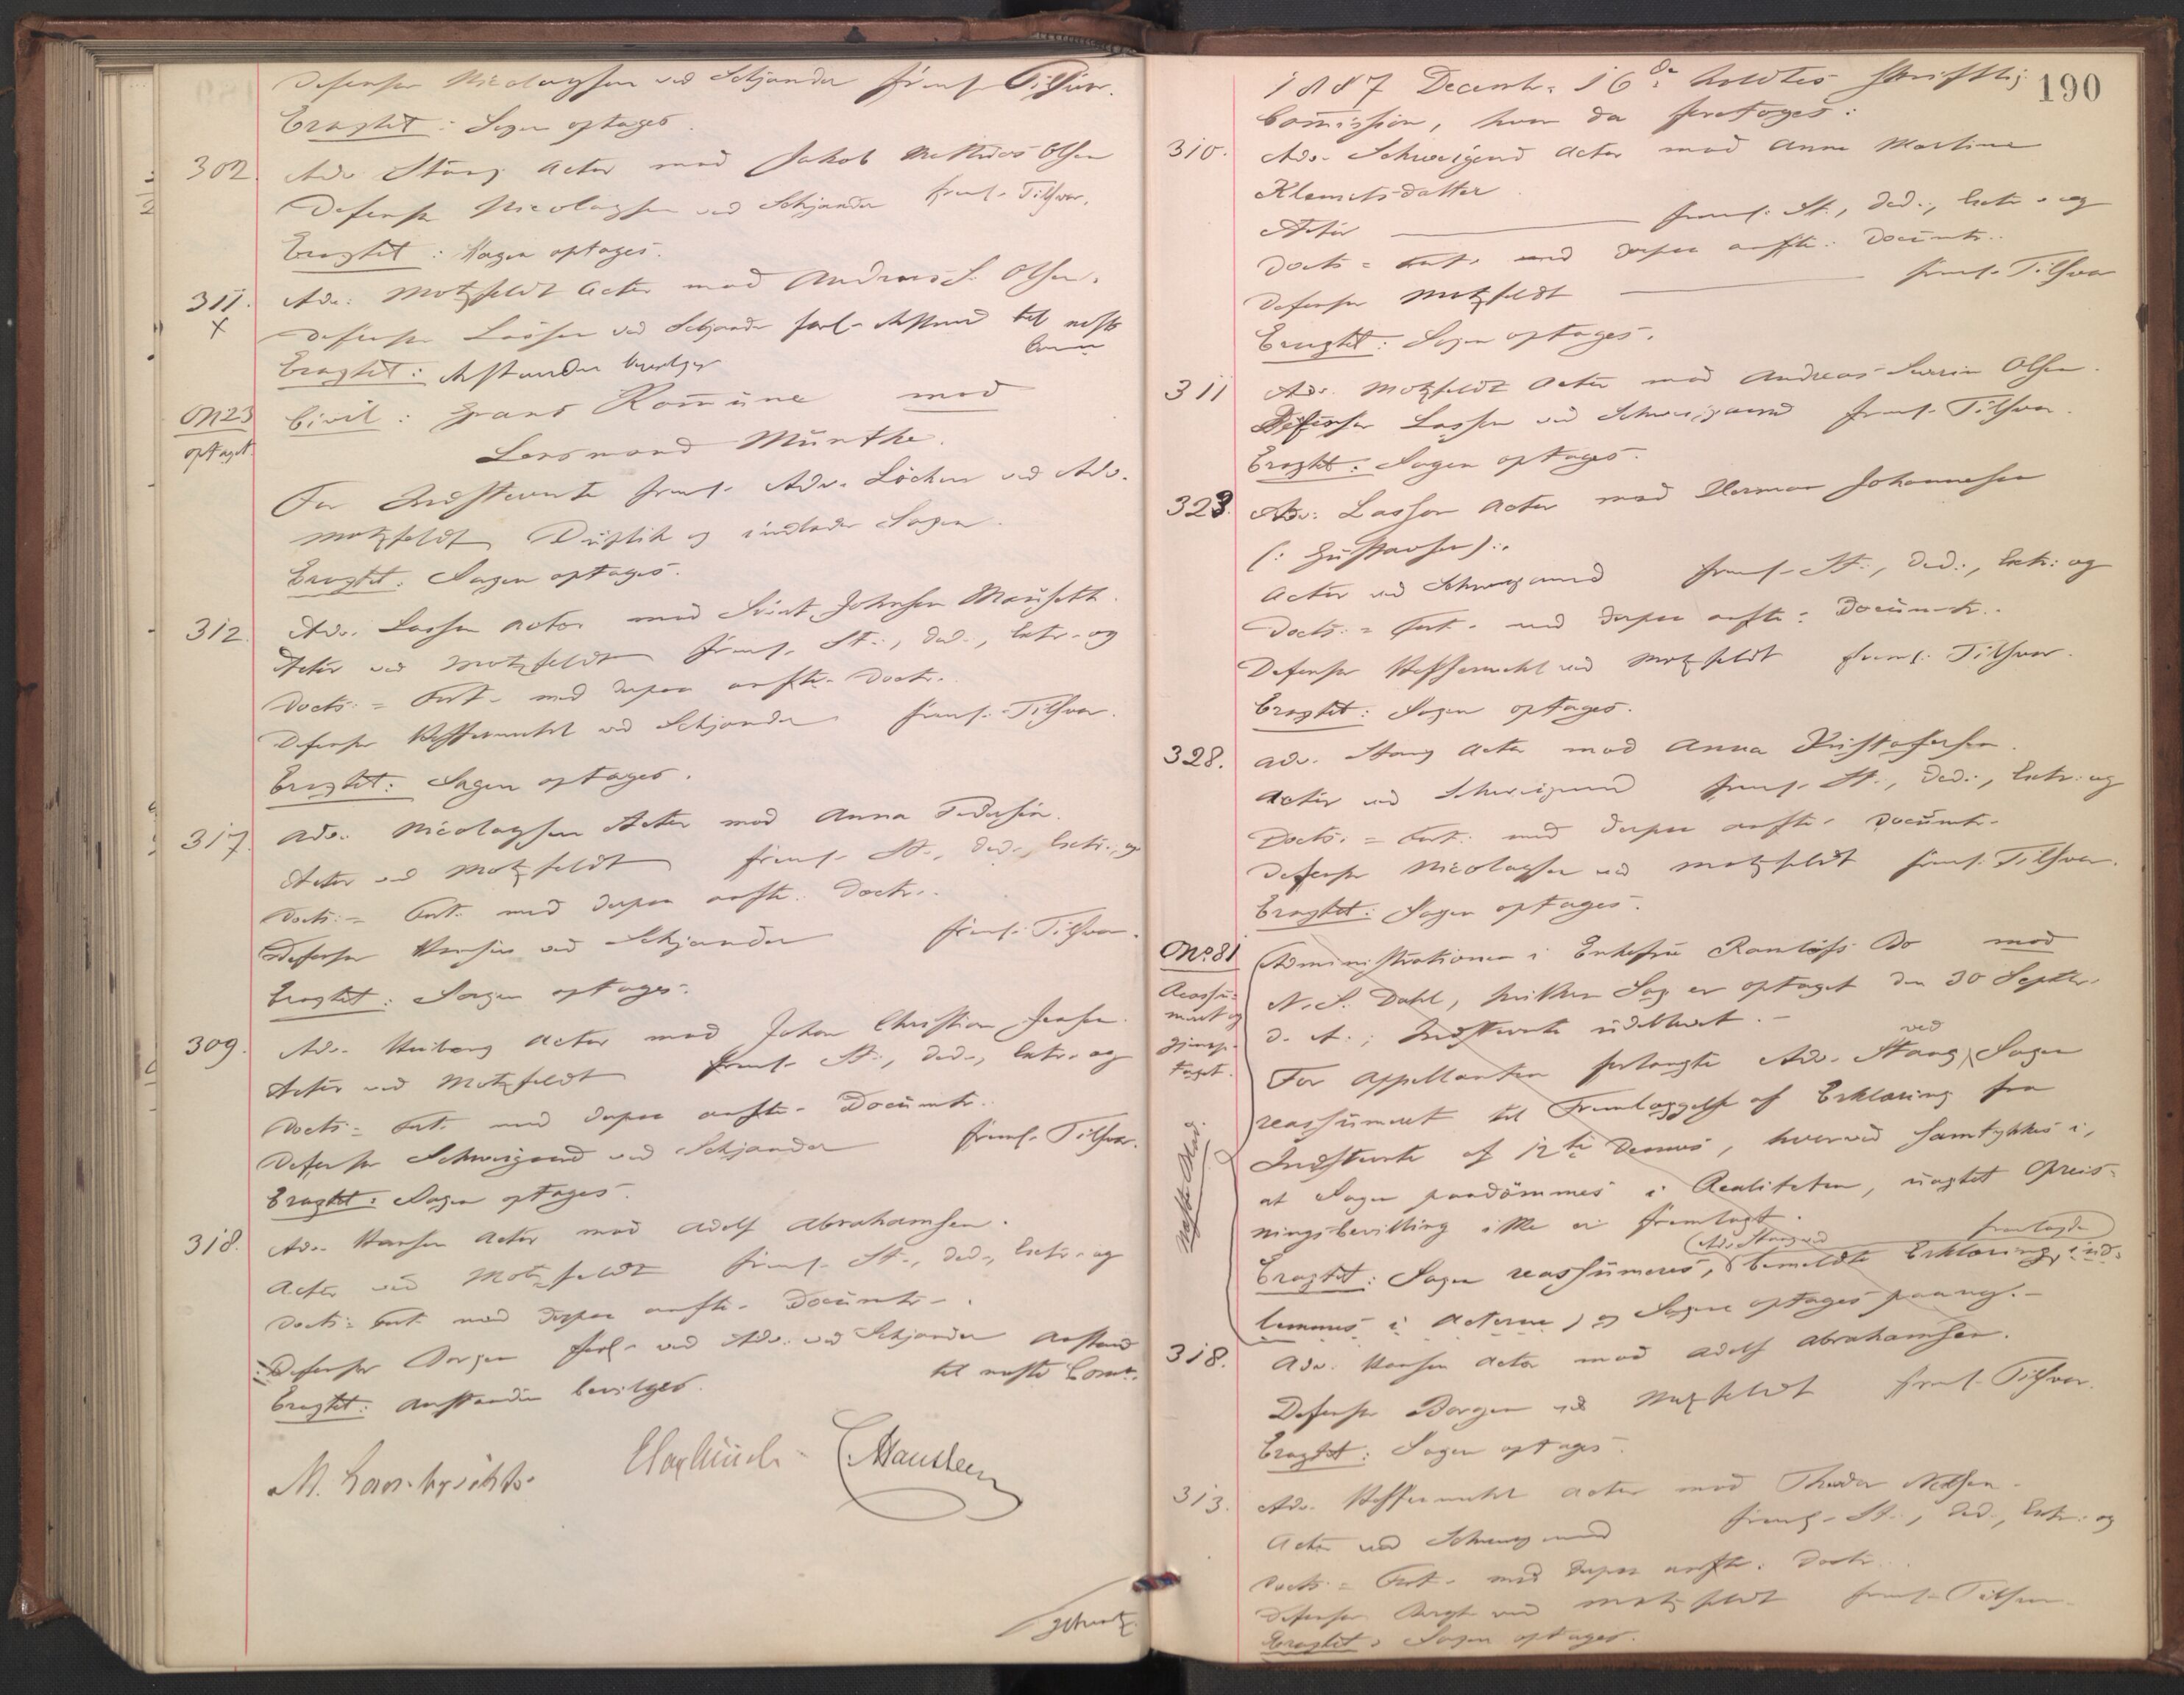 Defensor Nicolaysen ved Schjander freml. Tilsvar.
Eragtet: Sagen optages.
302. Adv. Stang Actor mod Jakob Mathias Olsen
Defensor Nicolaysen ved Schjander freml. Tilsvar.
Eragtet: Sagen optages.
311. Adv. Motzfeldt Actor mod Andreas S. Olsen.
X
Defensor Lasson ved Schjander forl. Anstand til næste
Comm
Eragtet: Anstanden bevilges
No 23 Civil: Grans Kommune mod
optaget. Lensmand Münthe.
For Indstevnte freml. Adv. Löchen ved Adv.
Motzfeldt Duplik og indlader Sagen.
Eragtet: Sagen optages.
312. Adv. Lasson Actor mod Johnsen
Actor ved Motzfeldt freml. St., Ded., Extr. og
Docts: = Fort. med derpaa anfte. Doctr.
Defensor Heffermehl ved Schjander freml. Tilsvar.
Eragtet: Sagen optages.
317. Adv. Nicolaysen Actor mod Anna Pedersen.
Actor ved Motzfeldt freml. St., Ded., Extr. og
Docts: = Fort. med derpaa anfte. Doctr.
Defensor Hansen ved Schjander freml. Tilsvar.
Eragtet: Sagen optages.
309. Adv. Actor mod Johan Christian Jensen.
Actor ved Motzfeldt freml. St., Ded., Extr. og
Docts: = Fort. med derpaa anfte. Documtr.
Defensor Schweigaard ved Schjander freml. Tilsvar.
Eragtet: Sagen optages.
318. Adv. Hansen Actor mod Adolf Abrahamsen.
Actor ved Motzfeldt freml. St., Ded., Extr. og
Docts: = Fort. med derpaa anfte. Documtr.
Defensor Borgen forl. ved Adv. ved Schjander Anstand
til næste Comm.
Eragtet: Anstanden bevilges.
M. Lambrechts. Hansteen
190
1887 Decemb. 16de holdtes skriftlig
Commission, hvor da foretoges:
310. Adv. Schweigaard Actor mod Anne Martine
Klemetsdatter.
Actor freml. St., Ded., Extr. og
Docts: = Fort. med derpaa anfte. Documtr.
Defensor Motzfeldt freml. Tilsvar
Eragtet: Sagen optages.
311 Adv. Motzfeldt Actor mod Andreas Severin Olsen.
Defensor Lasson ved Schweigaard freml. Tilsvar.
Eragtet: Sagen optages.
323. Adv. Lasson Actor mod Herman Johannesen
(: Gustavsen :).
Actor ved Schweigaard freml. St., Ded., Extr. og
Docts: = Fort. med derpaa anfte. Documtr.
Defensor Heffermehl ved Motzfeldt freml. Tilsvar.
Eragtet: Sagen optages.
328. Adv. Stang Actor mod Anna Kristofersen.
Actor ved Schweigaard freml. St., Ded., Extr. og
Docts: = Fort. med derpaa anfte. Documtr.
Defensor Nicolaysen ved Motzfeldt freml. Tilsvar.
Eragtet: Sagen optages.
No. 81 Administrationen i Enkefru Bo mod
Reassu-
meret og
gjenop-
taget.
N. S. Dahl, hvilken Sag er optaget den 30 Septbr.
d. A.; Indstevnte udeblevet.
ved
For Appellanten forlangte Adv. Stang Sagen
reassumeret til Fremlæggelse af Erklæring fra
Indstevnte af 12te Dennes, hvorved samtykkes i,
at Sagen paadömmes i Realiteten, uagtet Opreis-
Næste Blad.
ningsbevilling ikke er fremlagt.
Adv. Stang ved
fremlagde
Eragtet: Sagen reassumeres, bemeldte Erklæring, ind-
lemmes i Acterne, og Sagen optages paany.
318. Adv. Hansen Actor mod Adolf Abrahamsen.
Defensor Borgen ved Motzfeldt freml. Tilsvar.
Eragtet: Sagen optages.
313. Adv. Heffermehl Actor mod Theodor Nilsen.
Actor ved Schweigaard freml. St., Ded., Extr. og
Docts: = Fort. med derpaa anfte. Doctr.
Defensor ved Motzfeldt freml. Tilsvar.
Eragtet: Sagen optages.